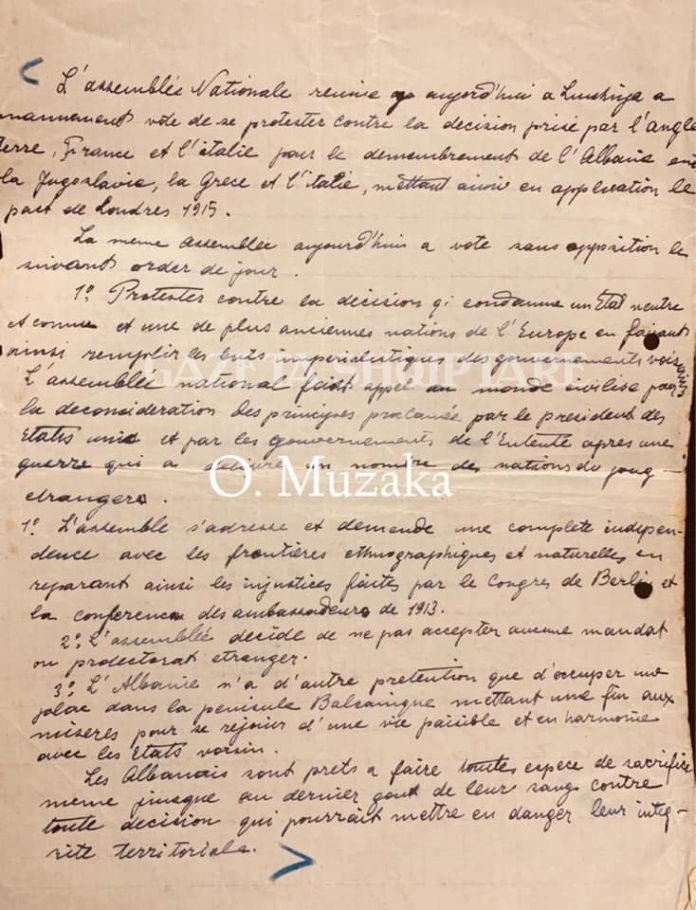 L'assemblée Nationale reunie aujord'hui a Lushnja a
unanmement vote de se protester contre la decision prise par l'angle
terre, France et l'italie pour le demembrement de l'Albanie ent
la Jugoslavie, la Grece et l'italie, mettant ainsi en application le
pact de Londres 1915.
La meme assemblée aujourd'hui a vote sans opposition le
suivant order de jour.
1º Protester contre la décision qi condamne un Etat neutre
et connue et une de plus anciennes nations de l'Europe en faisant
ainsi remplir les buts imperialistiques des gouvernements voisins
GAZETA SHQIPTARE
L'assemblée national fait appel au monde civilise par
la deconsideration des principes proclamée par le president des
Etats unis et par les gouvernements de l'Entente apres une
guerre qui a delivré un nombre des nations du joug
etrangere.
O. Muzaka
1º L'assemble s'adresse et demande une complete indepen-
dence avec les frontières ethnographiques et naturelles en
reparant ainsi les injustices faites par le Congres de Berlin et
la conference des ambassadeurs de 1913.
2º L'assemblée decide de ne pas accepter aucune mandat
ou protectorat etranger.
3º L'Albanie n'a d'autre pretention que d'occuper une
place dans la penisule Balcanique mettant une fin aux
miseres pour se rejouir d'une vie paisible et en harmonie
avec les Etats voisin.
Les Albanais sont prets a faire toutes espece de sacrifice
meme jusque au dernier gout de leur sang contre
toute decision qui pourrait mettre en danger leur integ-
rite territoriale.